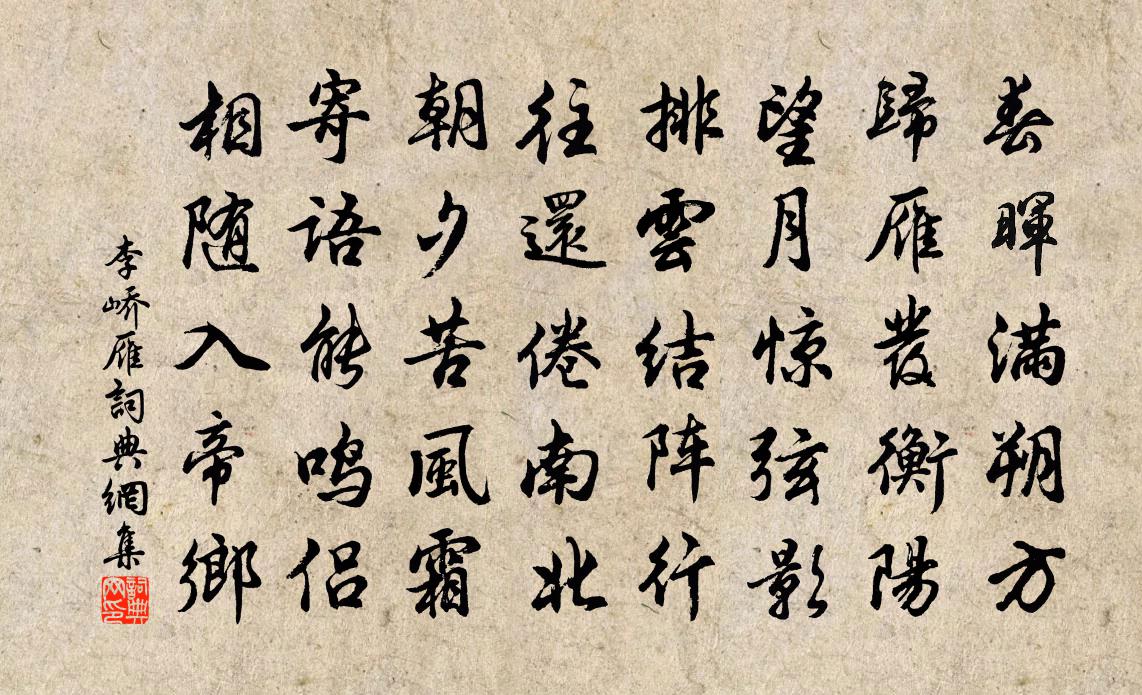 春暉满朔方
歸雁發衡陽
望月惊弦影
排雲结阵行
往還倦南北
朝夕苦風霜
寄語能鸣侣
相随入帝鄉
李峤雁詞典網集
詞典网印